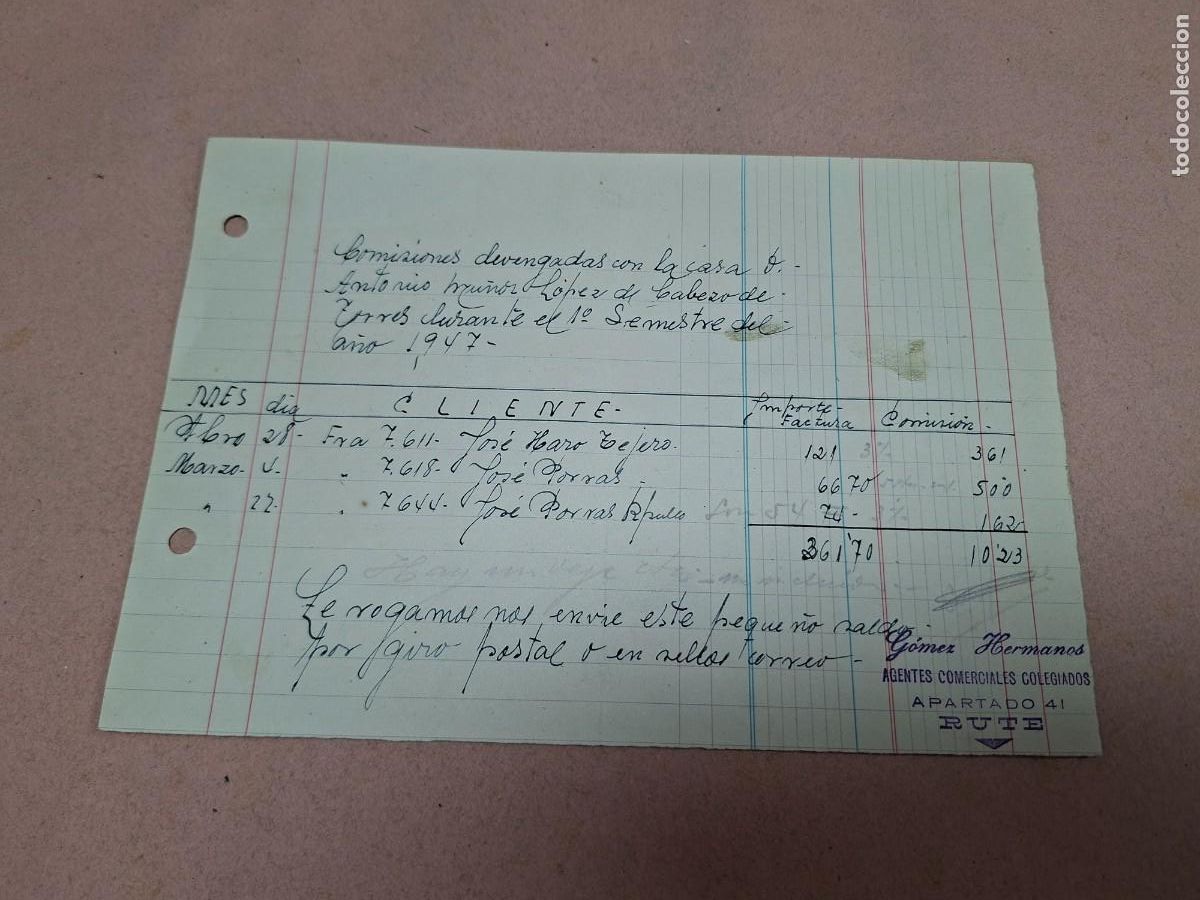 Comisiones devengadas con la casa D.-
Antonio Muñoz López de Cabezo de-
Torres durante el 1º Semestre del-
año 1947-
MES dia CLIENTE- Importe-Factura Comisión-
28- Fra 7.611- José Haro Tejero. 121 3% 361
Marzo- 4- " 7.618- José Porras. 6670 500
" 22- " 7644- José Porras 74- 3% 162
361'70 10'23
Hay un
Le rogamos nos envie este pequeño saldo-
por giro postal o en sellos correo-
Gómez Hermanos
AGENTES COMERCIALES COLEGIADOS
APARTADO 41
RUTE
todocoleccion